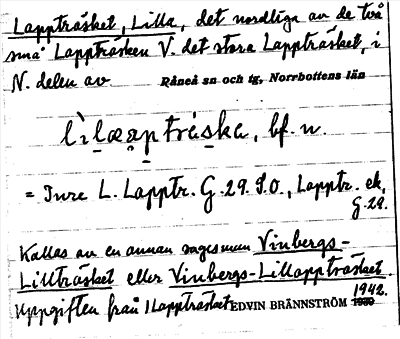 Lappträsket, Lilla, det nordliga av de två
små Lappträsken V. det stora Lappträsket, i
N. delen av Råneå sn och tg, Norrbottens län
lìlæ̀ptréska, bf. n.
= Inre L. Lapptr. G. 29. S.O., Lapptr. ek.
G. 29.
Kallas av en annan sagesman Vinbergs-
Lillträsket eller Vinbergs-Lillappträsket.
1942.
Uppgiften från Lappträsket EDVIN BRÄNNSTRÖM 1939